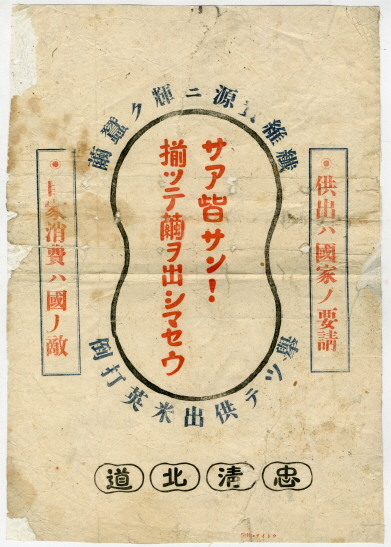 纖維源ニ輝ク蠶繭
・供出ハ國家ノ要請
サア皆サン!
揃ツテ繭ヲ出シマセウ
・家消費ハ國ノ敵
ツテ供出米英打倒
忠清北道